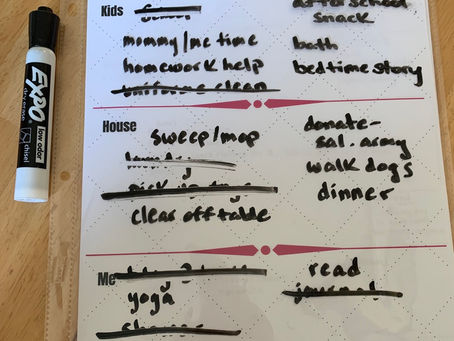 Kids
school
after school
snack
mommy/me time
bath
homework help
bedtime story
uniforms clean
House
sweep/mop
donate-
sal. army
laundry
walk dogs
dinner
clear off table
Me
read
yoga
journal
shower
EXPO
low odor
dry erase
chisel